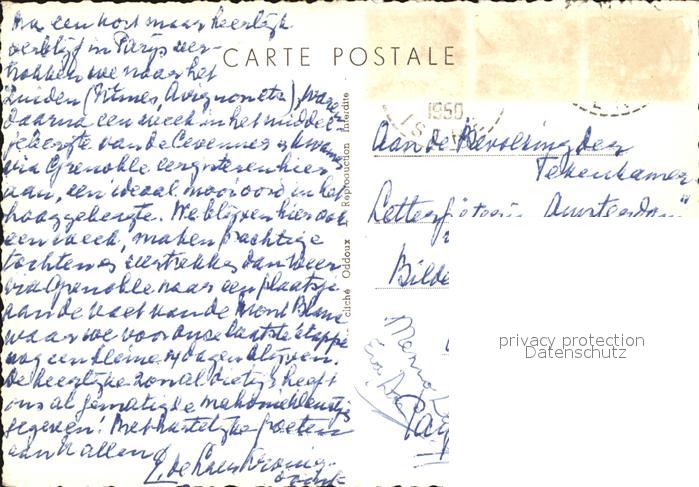 Na een kort maar heerlijk
verblijf in Parijs ver-
trokken we naar het
Zuiden (Nîmes, Avignon etz), waren
daarna een week in het middel-
gebergte van de Cevennes & kwamen
via Grenoble eergisteren hier
aan, een ideaal mooi oord in het
hooggebergte. We blijven hier ook
een week, maken prachtige
tochten en vertrekken dan weer
via Grenoble naar een plaatsje
aan de voet van de Mont Blanc
waar we voor onze laatste etappe
nog een kleine 14 dagen blijven.
De heerlijke zon al die tijd heeft
ons al gematigde mahonie kleurtjes
gegeven! Met hartelijke groeten
aan U allen
CARTE POSTALE
cliché Oddoux Reproduction Interdite
1950
Aan de Bevolking der
Tekenkamer
Lettergieterij Amsterdam"
Bilde
privacy protection
Datenschutz